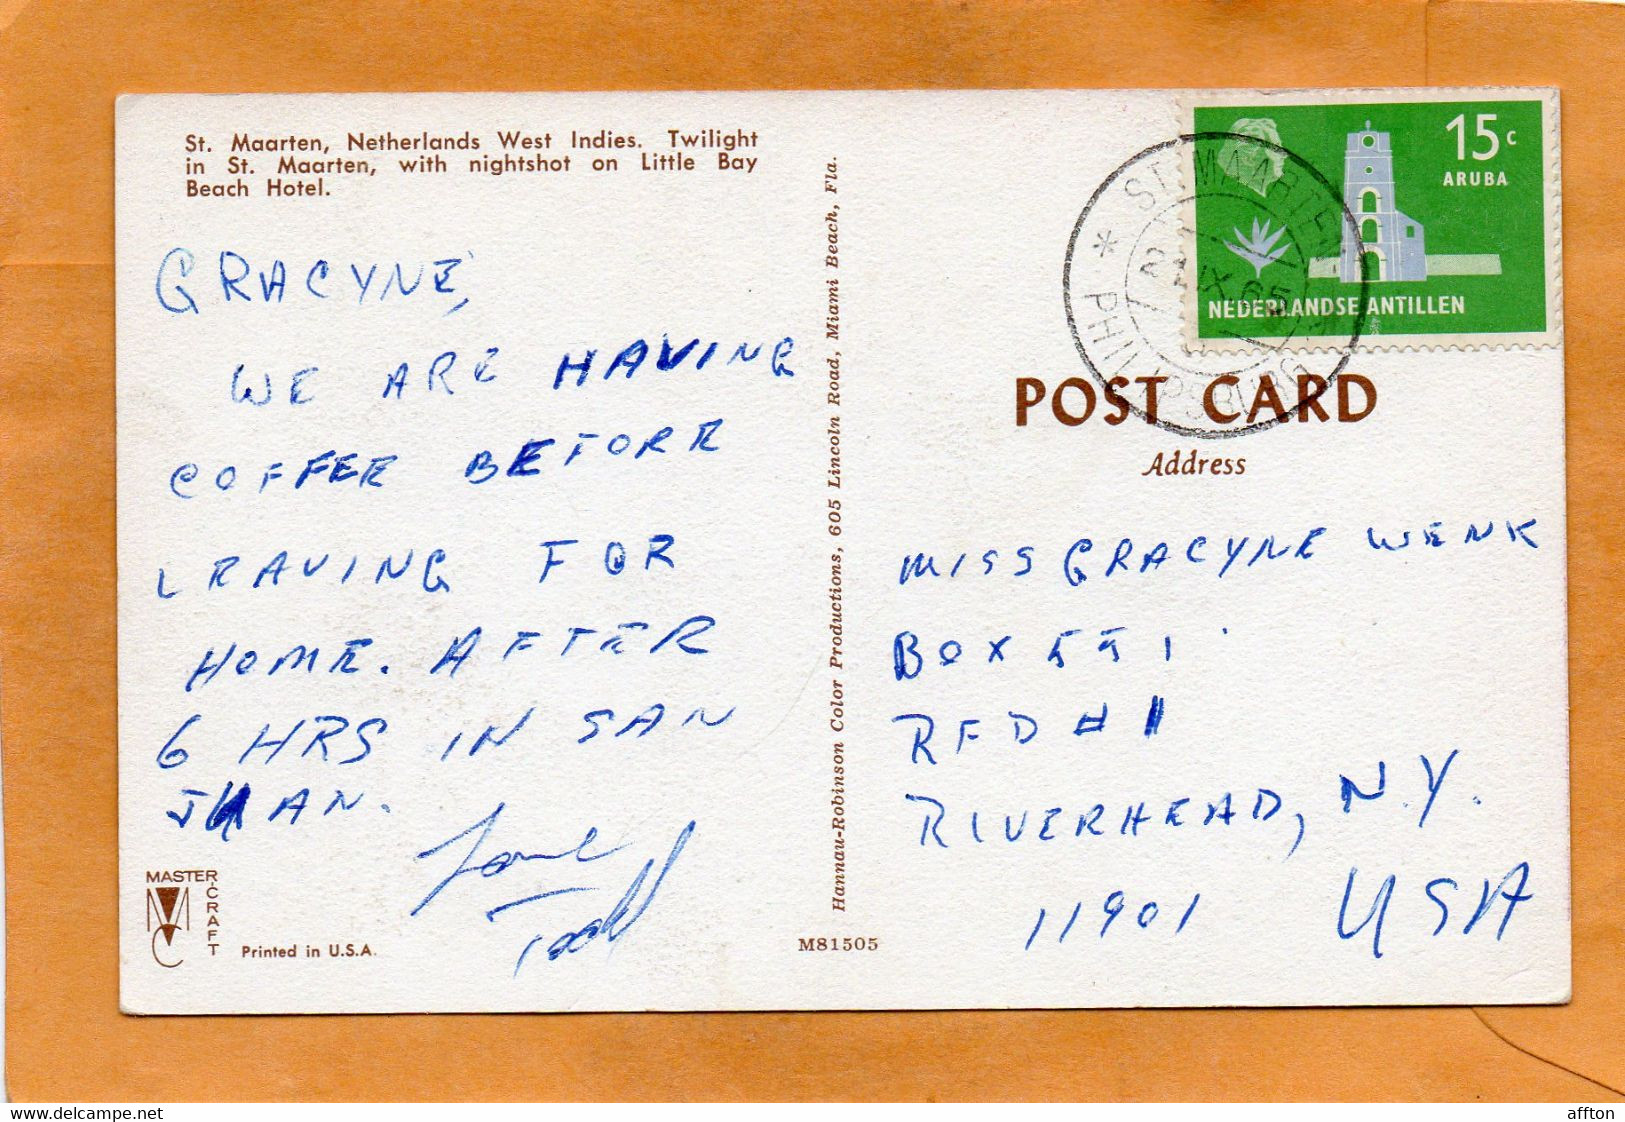 St. Maarten, Netherlands West Indies. Twilight
in St. Maarten, with nightshot on Little Bay
Beach Hotel.
GRACYNE,
WE ARE HAVING
COFFEE BEFORE
LEAVING FOR
HOME. AFTER
6 HRS IN SAN
JUAN.
MASTER
CRAFT
Printed in U.S.A.
Hannau-Robinson Color Productions, 605 Lincoln Road, Miami Beach, Fla.
M81505
15c
ARUBA
NEDERLANDSE ANTILLEN
ST. MAARTEN
* PHILIPSBURG
IX 65
POST CARD
Address
MISS GRACYNE WENK
BOX 551
RFD #1
RIVERHEAD, N.Y.
11901 USA
affton